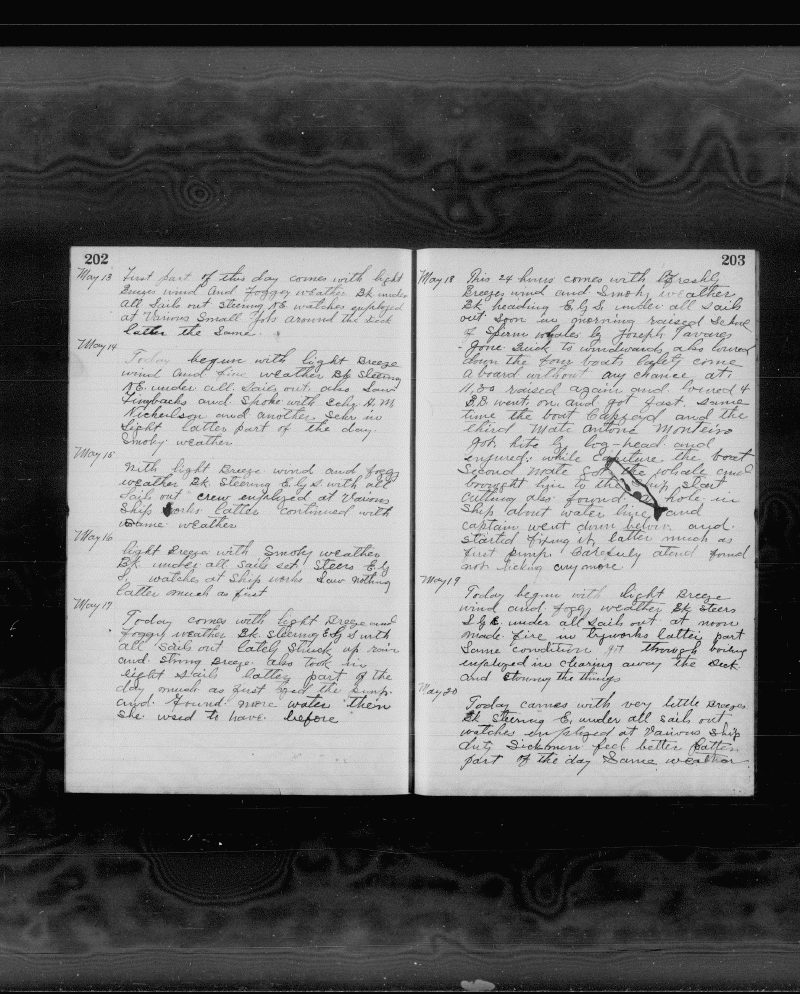 202
May 13 First part of this day comes with light
Breeze wind and Foggy weather Bk under
all Sails out Steering N.E. watches employed
at Various Small Jobs around the Deck
latter the Same.
May 14
Today begun with light Breeze
wind and fine weather Bk Steering
N.E. under all Sails out, also Saw
Finbacks and Spoke with Schr A. M.
Nickerlson and another Schr in
Sight latter part of the day
Smoky weather
May 15
With light Breeze wind and foggy
weather Bk Steering E.by S with all
Sails out crew employed at Various
Ship works latter continued with
Same weather
May 16
light Breeze with Smoky weather
Bk under all Sails set Steers E. by
S. watches at Ship works Saw nothing
latter much as first
May 17
Today comes with light Breeze and
Foggy weather Bk Steering E by S with
all Sails out lately Struck up rain
and strong Breeze also took in
light Sails latter part of the
day much as first the pump
and found more water then
She used to have before
203
May 18 This 24 hours comes with Freshly
Breeze wind and Smoky weather
Bk heading E. by S. under all Sails
out Soon in morning raised School
of Sperm whales by Joseph Tavares
Gone Quick to windward also lowered
down the four boats lately come
a board without any chance at
11,30 raised again and lowred 4
B.B. went on and got fast Same
time the boat Capsaid and the
third Mate Antone Monteiro
got hite by log-head and
engured. while Capture the boat
Second Mate got the whale and
bourght him to the Ship Start
cutting also found a hole in
Ship about water line and
captain went down below and
started fixing it latter much as
first pump Carefuly atend found
not licking any more
May 19
Today begun with light Breeze
wind and foggy weather Bk Steers
under all Sails out at noon
made fire in tryworks latter part
Same condition got through boiling
employed in clearing away the Deck
and Stowing the things
May 20
Today comes with very little Breeze
Bk Steering E, under all Sails out
watches employed at Various Ship
duty Sickmen feel better latter
part of the day Same weather